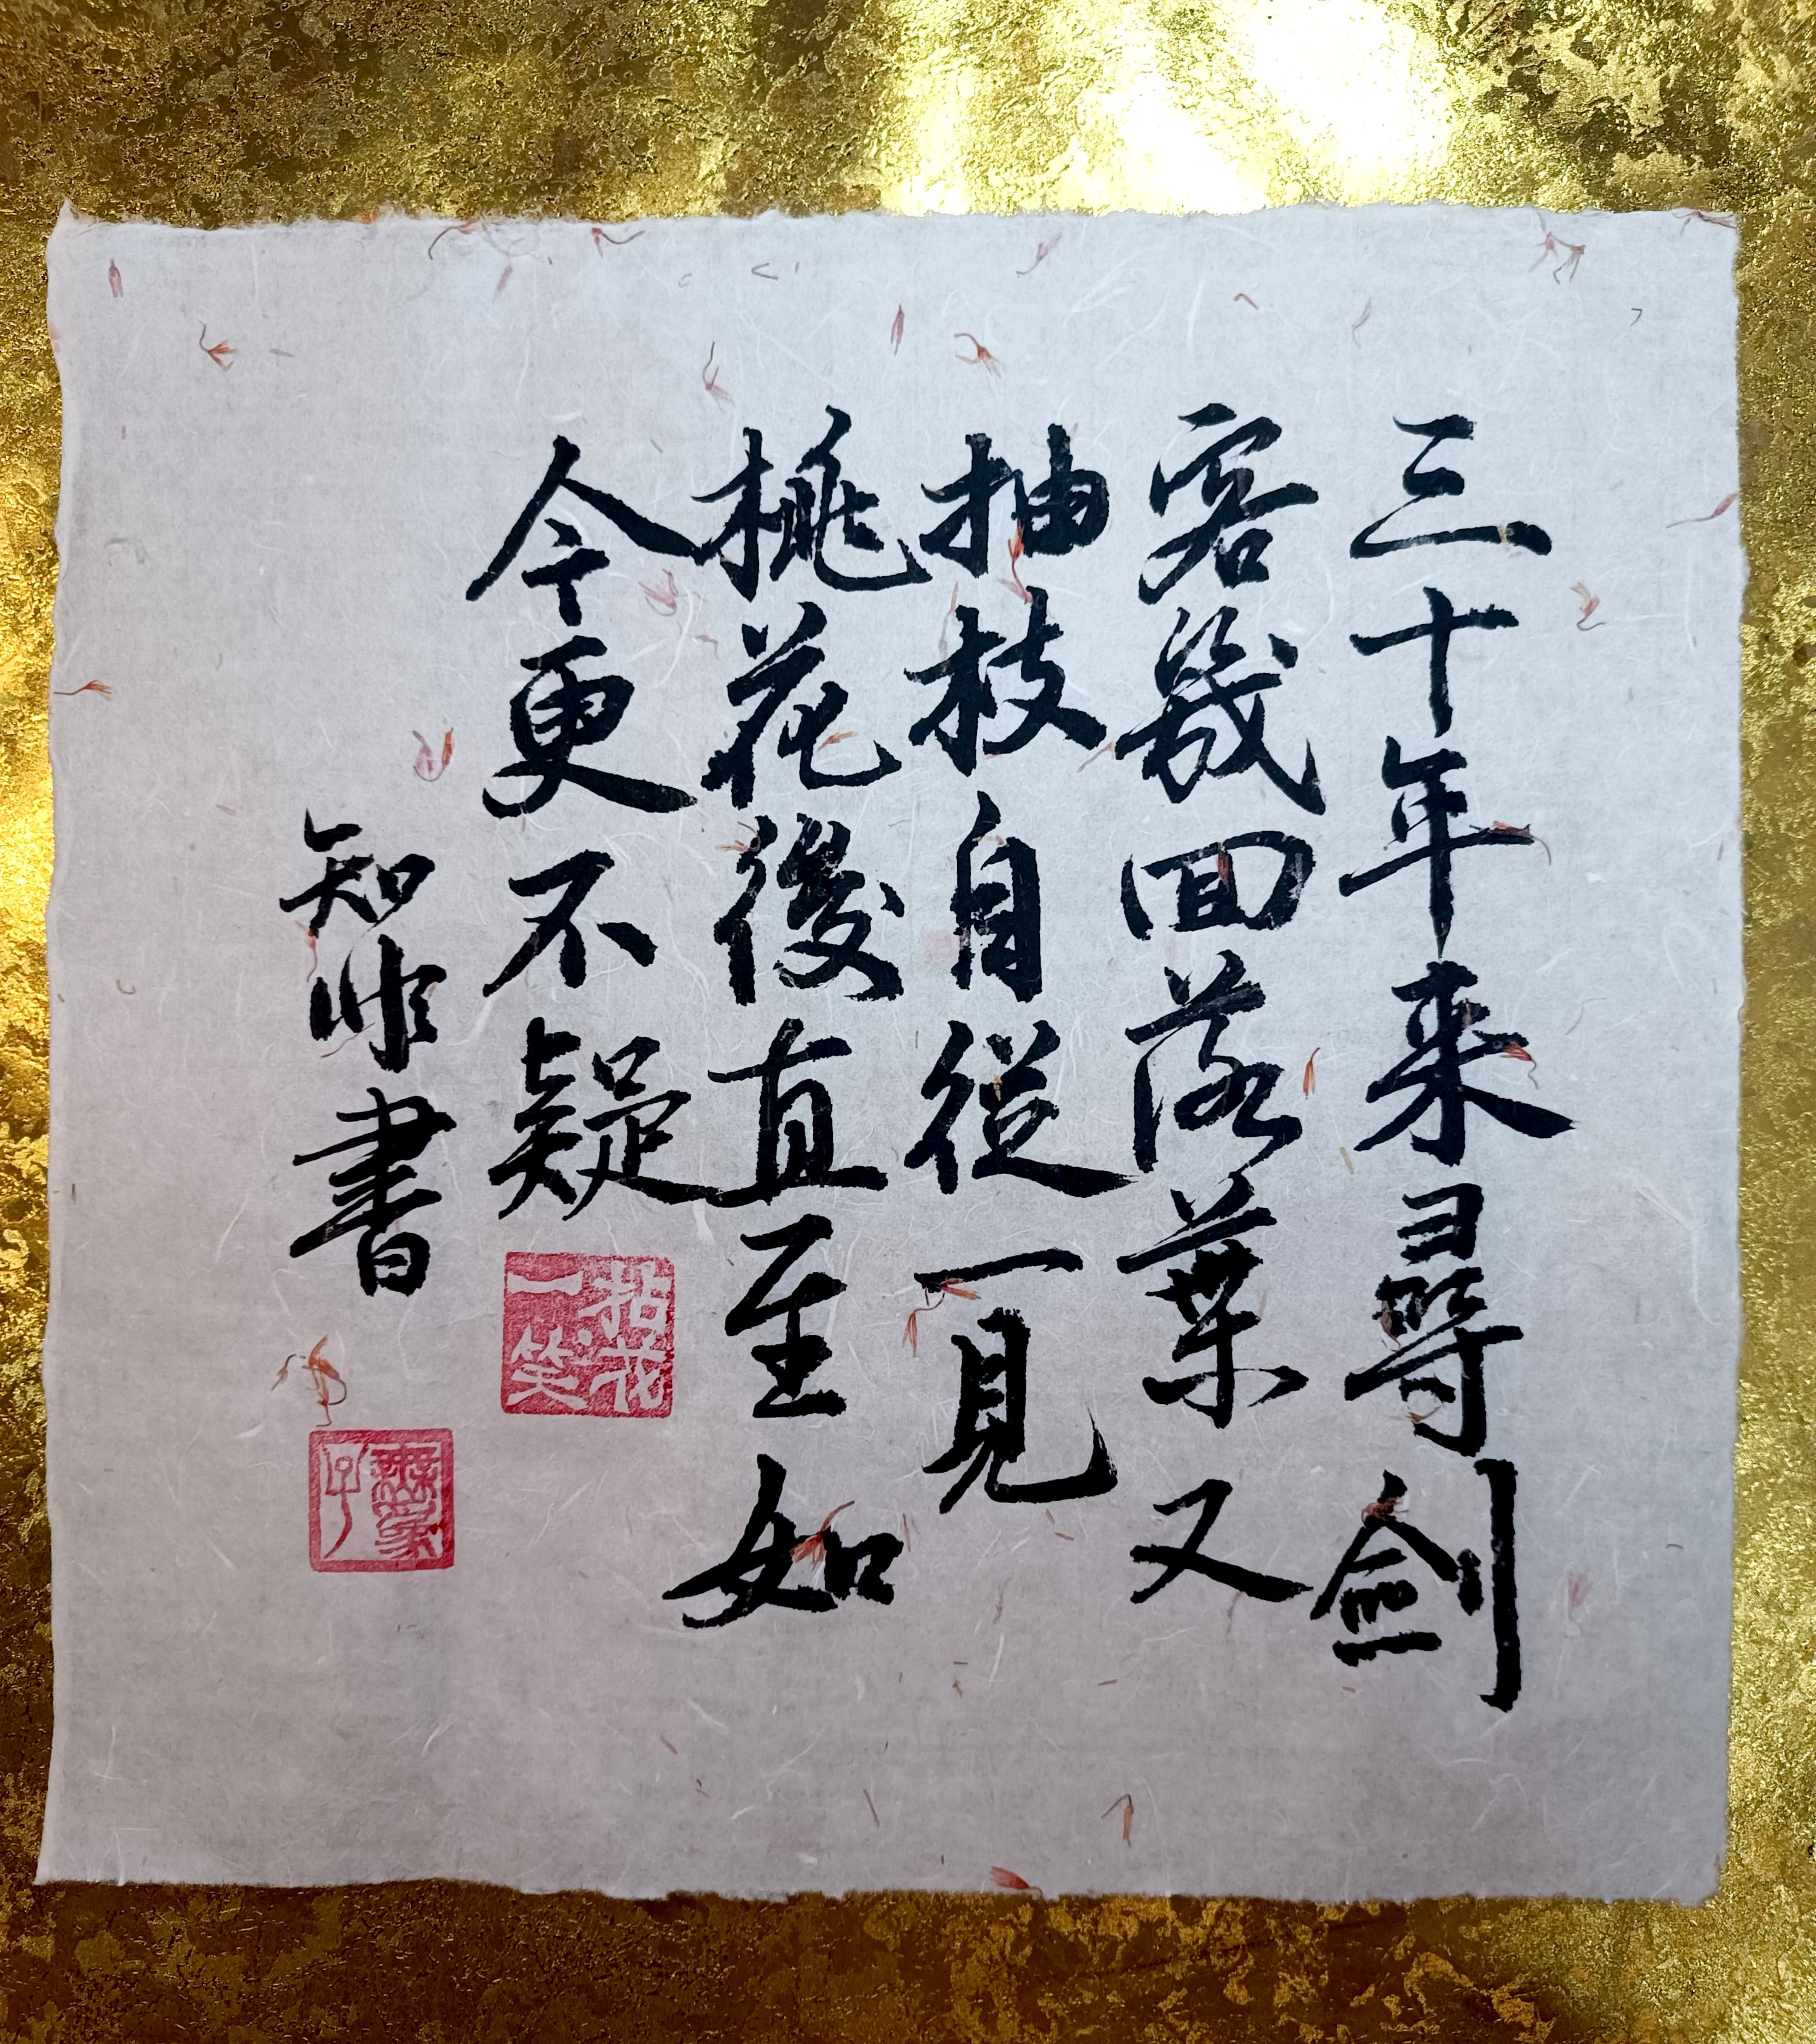 三十年来尋劍
客幾回落葉又
抽枝自從一見
桃花後直至如
今更不疑
拈花一笑
知非書